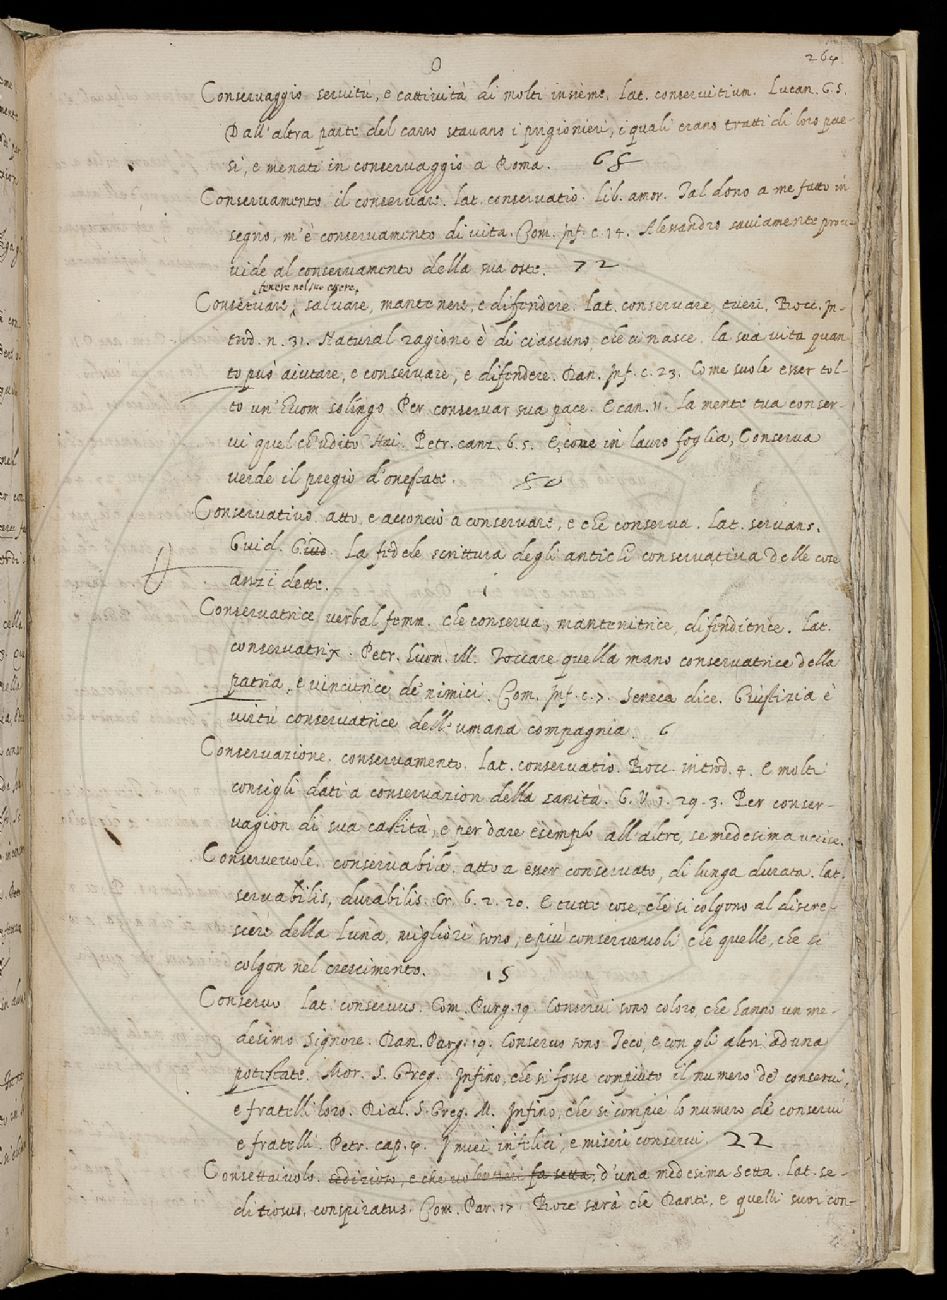 264
Conseruaggio seruitù, e cattiuità di molti insieme. Lat. conseruitium. Lucan. 65.
Dall'altra parte del carro stauano i prigionieri, i quali erano tratti di loro pae-
si, e menati in conseruaggio a Roma. 68
Conseruamento il conseruare. Lat. conseruatio. Lib. amor. Tal dono a me fatto in
segno, m'è conseruamento di uita. Com. Inf. c. 14. Alessandro sauiamente prou-
uide al conseruamento della sua oste. 72
tenere nel suo essere,
Conseruare, saluare, mantenere, e difendere. Lat. conseruare, tueri. Bocc. In-
trod. n. 31. Natural ragione è di ciascuno, che ci nasce, la sua uita quan
to può aiutare, e conseruare, e difendere. Dan. Inf. c. 23. Come suole esser tol-
to un'huom solingo Per conseruar sua pace. E can. 11. La mente tua conser-
ui quel ch'udito Hai. Petr. canz. 6. 5. E, come in lauro foglia, Conserua
uerde il pregio d'onestate. 80
Conseruatiuo. atto, e acconcio a conseruare, e che conserua. Lat. seruans.
Guid. Giud. La fedele scrittura degli antichi conseruatiua delle cose
anzi dette. 1
Conseruatrice, uerbal femm. che conserua, mantenitrice, difenditrice. Lat.
conseruatrix. Petr. huom. ill. Toccare quella mano conseruatrice della
patria, e uincitrice de' nimici. Com. Inf. c. 7. Seneca dice. Giustizia è
uirtù conseruatrice dell'umana compagnia. 6
Conseruazione. conseruamento. Lat. conseruatio. Bocc. introd. 4. E molti
consigli dati a conseruazion della sanità. G. V. 1. 29. 3. Per conser-
uagion di sua castità, e per dare esemplo all'altre, se medesima uccise.
Conseruevole. conseruabile. atto a esser conseruato, di lunga durata. Lat.
seruabilis, durabilis. Cr. 6. 2. 20. E tutte cose, che si colgono al discre-
scere della Luna, migliori sono, e più conseruevoli che quelle, che si
colgon nel crescimento. 15
Conseruo Lat. conseruus. Com. Purg. 19. Conserui sono coloro, che hanno un me-
desimo Signore. Dan. Purg. 19. Conseruo sono Teco, e con gli altri ad una
potestate. Mor. S. Greg. Infino, che si fosse compiuto il numero de' conserui,
e fratelli loro. Dial. S. Greg. M. Infino, che si compiè lo numero de' conserui
e fratelli. Petr. cap. 4. I miei infelici, e miseri conserui. 22
Consettaiuolo. sedizioso, e che fa setta, d'una medesima setta. Lat. se-
ditiosus, conspiratus. Com. Par. 17. Bocc sarà che Dante, e quelli suoi con-